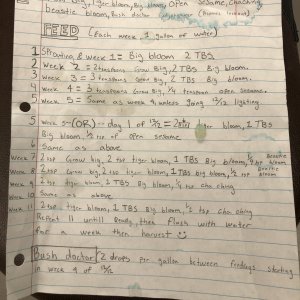 Big, tiger bloom, Big bloom, open sesame, chaching,
beastie bloom, Bush doctor
FEED (Each week, 1 gallon of water)
1 Sprouting & week 1 = Big bloom 2 TBS.
2 Week 2 = 2 teaspoons Grow big, 2 TBS Big bloom.
3 Week 3 = 3 teaspoons Grow Big, 2 TBS Big bloom.
4 Week 4 = 3 teaspoons Grow Big, 1/4 teaspoon open sesame.
5 Week 5 = Same as week 4 unless going 12/12 lighting.
5 Week 5-(OR)= day 1 of 12/12 = 2 tiger bloom, 1 TBS
Big bloom, 1/2 tsp of open sesame
6 Same as above
Week 7 2 tsp Grow big, 2 tsp tiger bloom, 1 TBS Big bloom, 1/2 tsp Beastie bloom
Week 8 2 tsp Grow big, 2 tsp tiger bloom, 1 TBS big bloom, 1/2 tsp Beastie bloom
Week 9 2 tsp tiger bloom, 1 TBS Big bloom, 1/2 tsp cha ching
Week 10 Same as above
Week 11 2 tsp tiger bloom, 1 TBS Big bloom, 1/2 tsp cha ching
Repeat 11 until Ready, then flush with water
for a week then harvest
Bush doctor 2 drops per gallon between feedings starting
in week 4 of 12/12